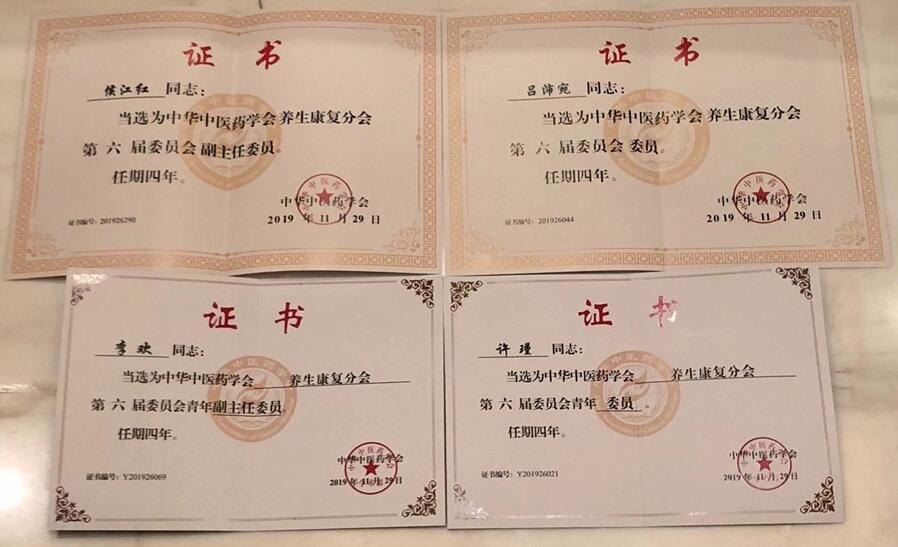 证书
侯江红 同志：
当选为中华中医药学会 养生康复分会
第 六 届委员会 副主任委员。
任期四年。
中华中医药学会
证书编号：201926290
2019 年 11 月 29 日
证书
吕沛宛 同志：
当选为中华中医药学会 养生康复分会
第 六 届委员会 委员。
任期四年。
中华中医药学会
证书编号：201926044
2019 年 11 月 29 日
证书
李欢 同志：
当选为中华中医药学会 养生康复分会
第 六 届委员会青年副主任委员。
任期四年。
中华中医药学会
证书编号：Y201926069
2019 年 11 月 29 日
证书
许瑾 同志：
当选为中华中医药学会 养生康复分会
第 六 届委员会青年 委员 。
任期四年。
中华中医药学会
证书编号：Y201926021
2019 年 11 月 29 日